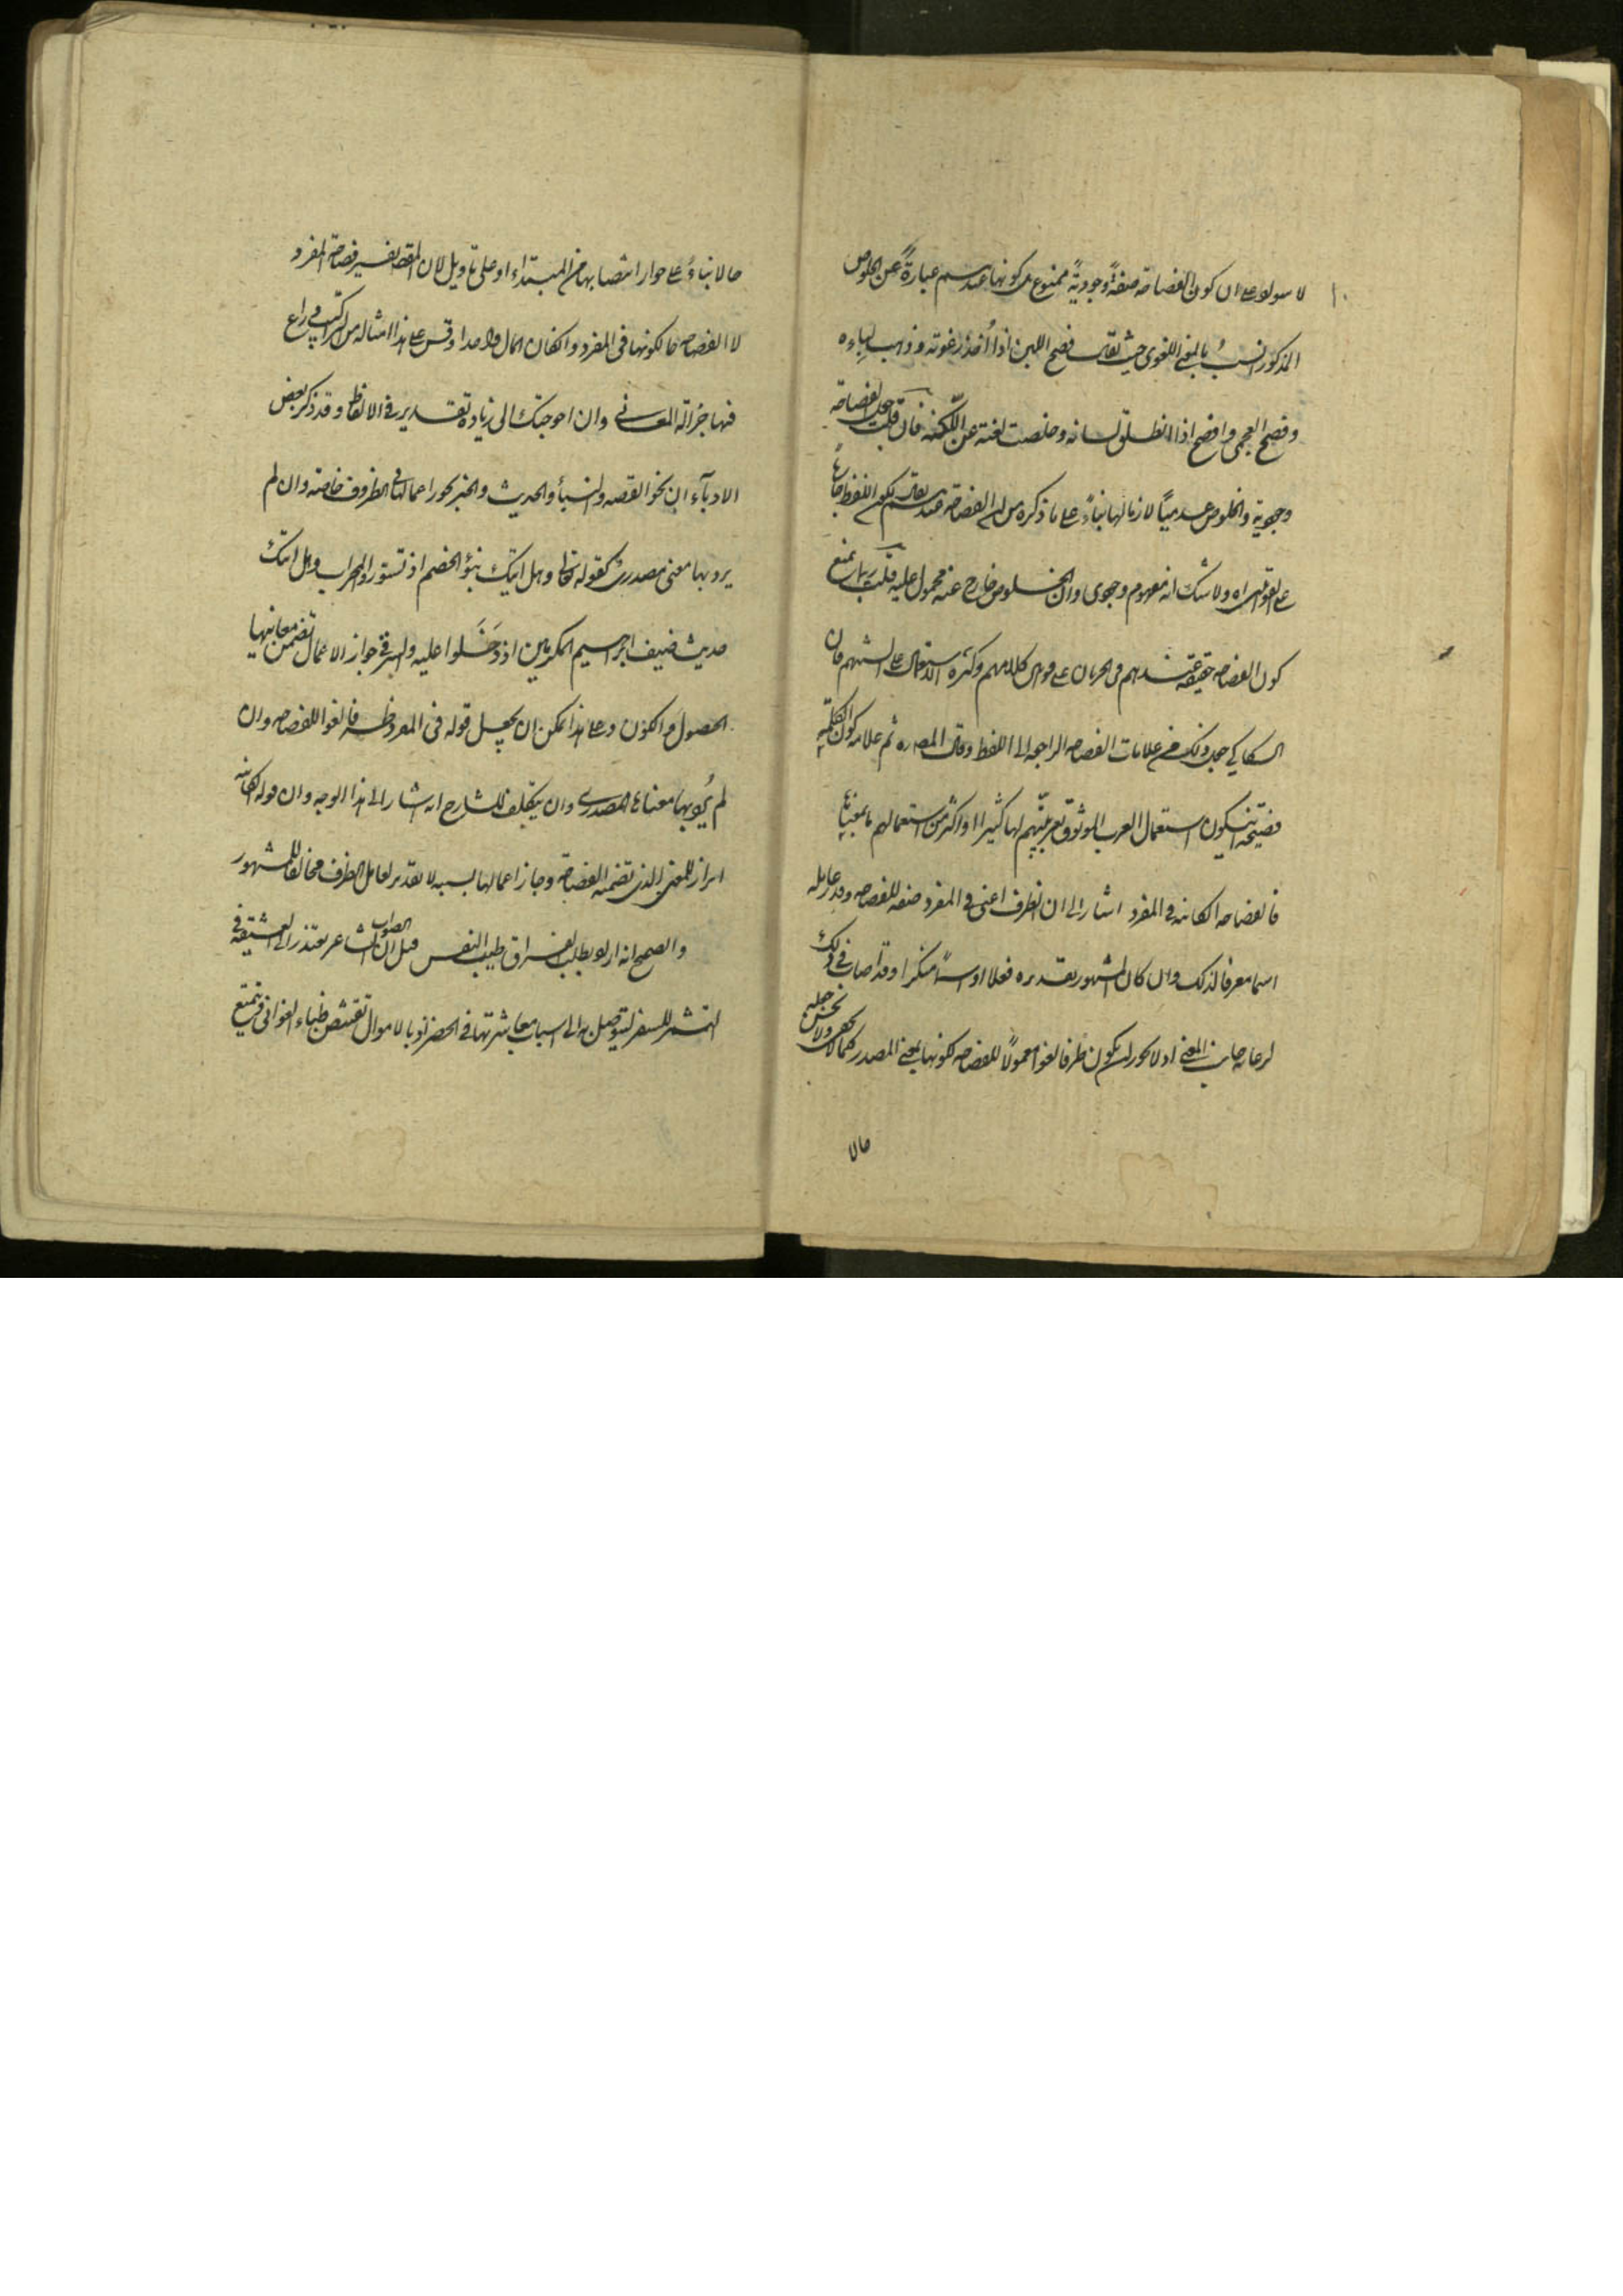 ١٠
لا سواه على ان كون الفصاحة صفةً وجوديةً ممنوع بل كونها عندهم عبارةً عن الخلوص
المذكور انسبُ بالمعنى اللغوى حيث يقال فصح اللبن اذا أُخذ رغوته وذهب لِباءه
وفصح العجمى وافصح اذا انطلق لسانه وخلصت لغته عن اللكنة فان قلت جعل الفصاحة
وجودية والخلوص عدمياً لازما لها بناءً على ما ذكره من ان الفصاحة عندهم يقال لكون اللفظ جارياً
على القوانين ولا شك انه مفهوم وجودى وان الخلوص خارج عنه محمول عليه قلت ربما يمنع
كون الفصاحه حقيقة عندهم فى الجريان على قوانين كلامهم وكثرة الاستعمال على السنتهم فان
السكاكي جعل ذلك من علامات الفصاحه الراجعه الى اللفظ وقال المص ره ثم علامه كون الكلمة
فصيحة ان يكون استعمال العرب الموثوق بعربيتهم لها كثيرا او اكثر من استعمالهم ما بمعناها
فالفصاحه الكائنه فى المفرد اشار الى ان الظرف اعنى فى المفرد صفه للفصاحه وقدر عامله
اسما معرفا لذلك وان كان المشهور تقديره فعلا او اسماً منكرا وقد اصاب فى ذلك
لرعايه جانب المعنى اذ لا يجوز ان يكون ظرفا لغوا معمولا للفصاحه لكونها بمعنى المصدر كما لا يخفى ولا يحسن جعله
حالا
حالا بناءً على جواز انتصابها من المبتداء او على تاويل لان المقص تفسير فصاحة المفرد
لا الفصاحه حال كونها فى المفرد وان كان المآل واحدا وقس على هذا امثاله من التراكيب فراع
فيها جزالة المعانى وان احوجتك الى زيادة تقدير فى الالفاظ وقد ذكر بعض
الادبآء ان نحو القصه والنبأ والحديث والخبر يجوز اعمالها فى الظروف خاصة وان لم
يرد بها معنى مصدرى كقوله تعالى وهل اتيك نبؤ الخصم اذ تسوروا المحراب وهل اتيك
حديث ضيف ابرهيم المكرمين اذ دَخَلوا عليه والسر فى جواز الاعمال تضمن معانيها
الحصول والكون وعلى هذا يمكن ان يجعل قوله فى المفرد ظرفا لغوا للفصاحه وان
لم يُرد بها معناها المصدرى وان يتكلف للشارح انه اشار الى هذا الوجه وان قوله الكائنه
ابراز للمعنى الذى تضمنه الفصاحة وجاز اعمالها بسببه لا تقدير لعامل الظرف مخالفا للمشهور
والصحيح انه اراد بطلب الفراق طيب النفس قيل الصواب ان الشاعر يعتذر الى العشيقة فى
التشمر للسفر ليتوصل به الى اسباب معاشرتها فى الحضر نوبا لاموال تقتنص ظباء الغوانى فيتمتع